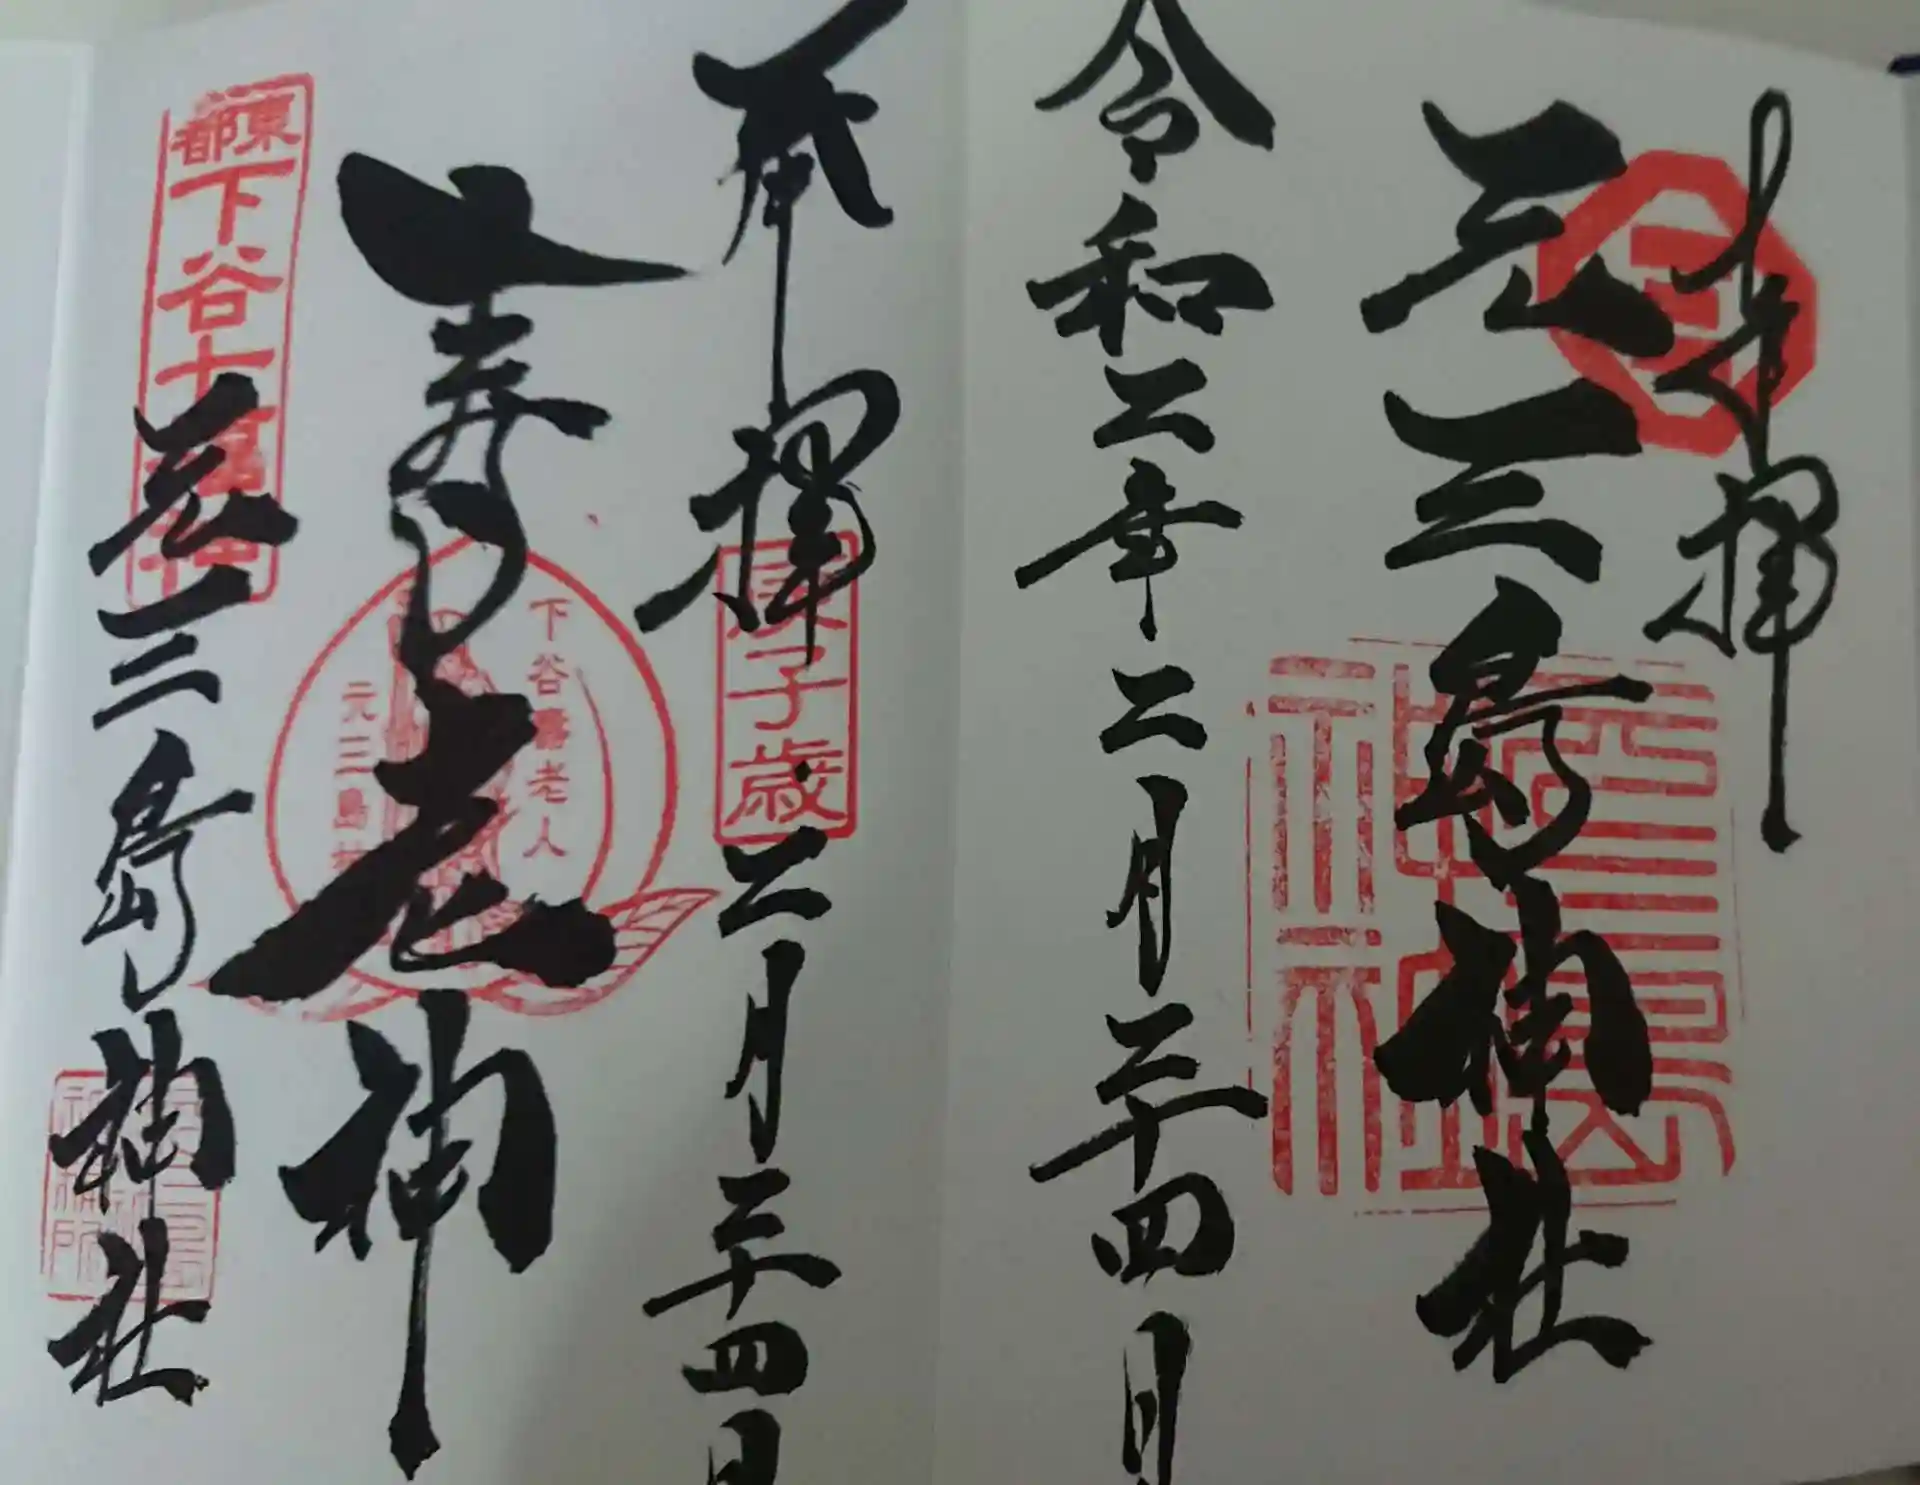 奉拝
元三島神社
元三島神社
令和二年二月二十四日
奉拝
庚子歳
二月二十四日
寿老神
下谷壽老人
元三島神社
東都
下谷七福神
元三島神社